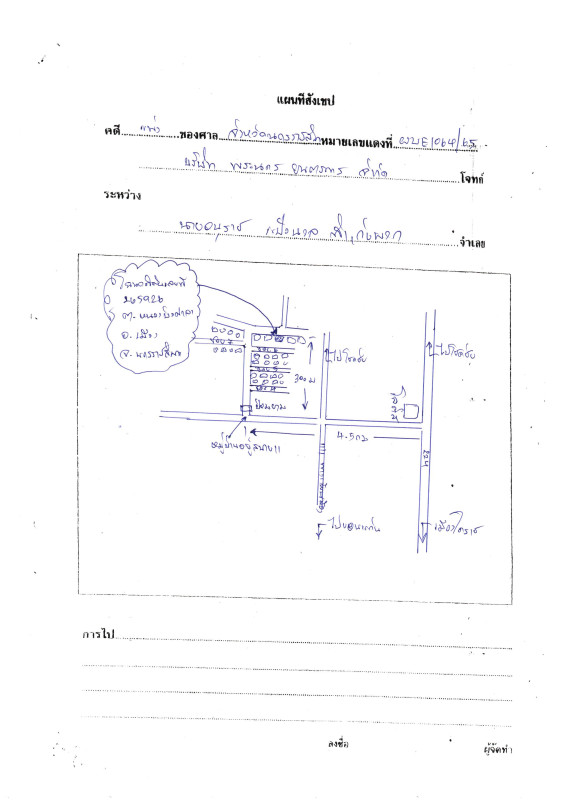 แผนที่สังเขป
คดี แพ่ง ของศาล จังหวัดนครราชสีมา หมายเลขแดงที่ ผบE1064/65
บริษัท พระนคร ยนตรการ จำกัด โจทก์
ระหว่าง
จำเลย
โฉนดที่ดินเลขที่
265926
ต. หนองบัวศาลา
อ. เมือง
จ. นครราชสีมา
ซอย 7
ซอย 6
ซอย 5
ซอย 4
300 ม
ป้อมยาม
ไปโชคชัย
ไปโชคชัย
4.5 กม
ไปขอนแก่น
การไป
ลงชื่อ
ผู้จัดทำ